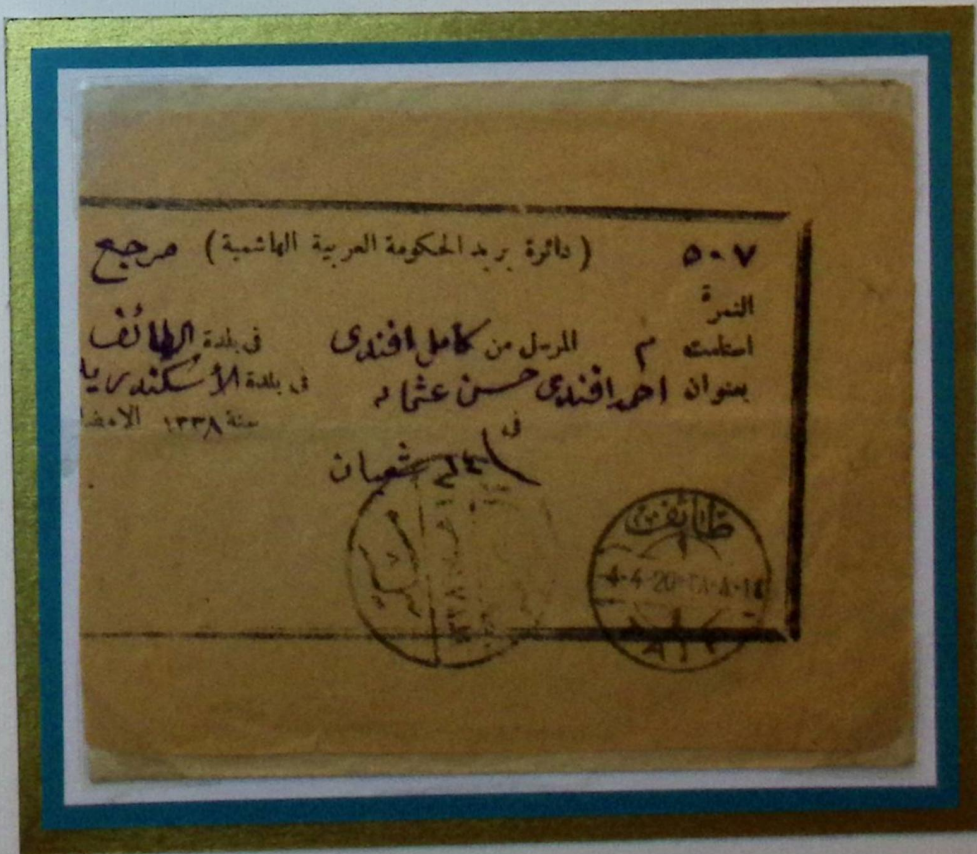 ٥٠٧ ( دائرة بريد الحكومة العربية الهاشمية ) مرجع
النمرة
استلمت م المرسل من كامل افندى فى بلدة الطائف
بعنوان احمد افندى حسن عثمان فى بلدة الأسكندريا
سنة ١٣٣٨ الامضا
فى ١٤ شعبان
طائف
4-4-20 ٣٨-٨-١٤
TAIF